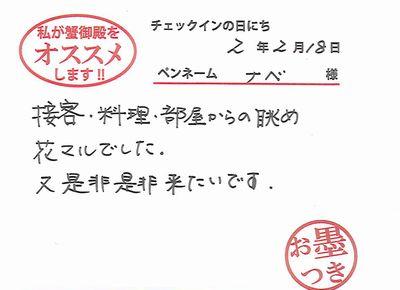 私が蟹御殿を
オススメ
します!!
チェックインの日にち
2年2月18日
ペンネーム ナベ 様
接客・料理・部屋からの眺め
花マルでした.
又是非是非来たいです.
お墨
つき